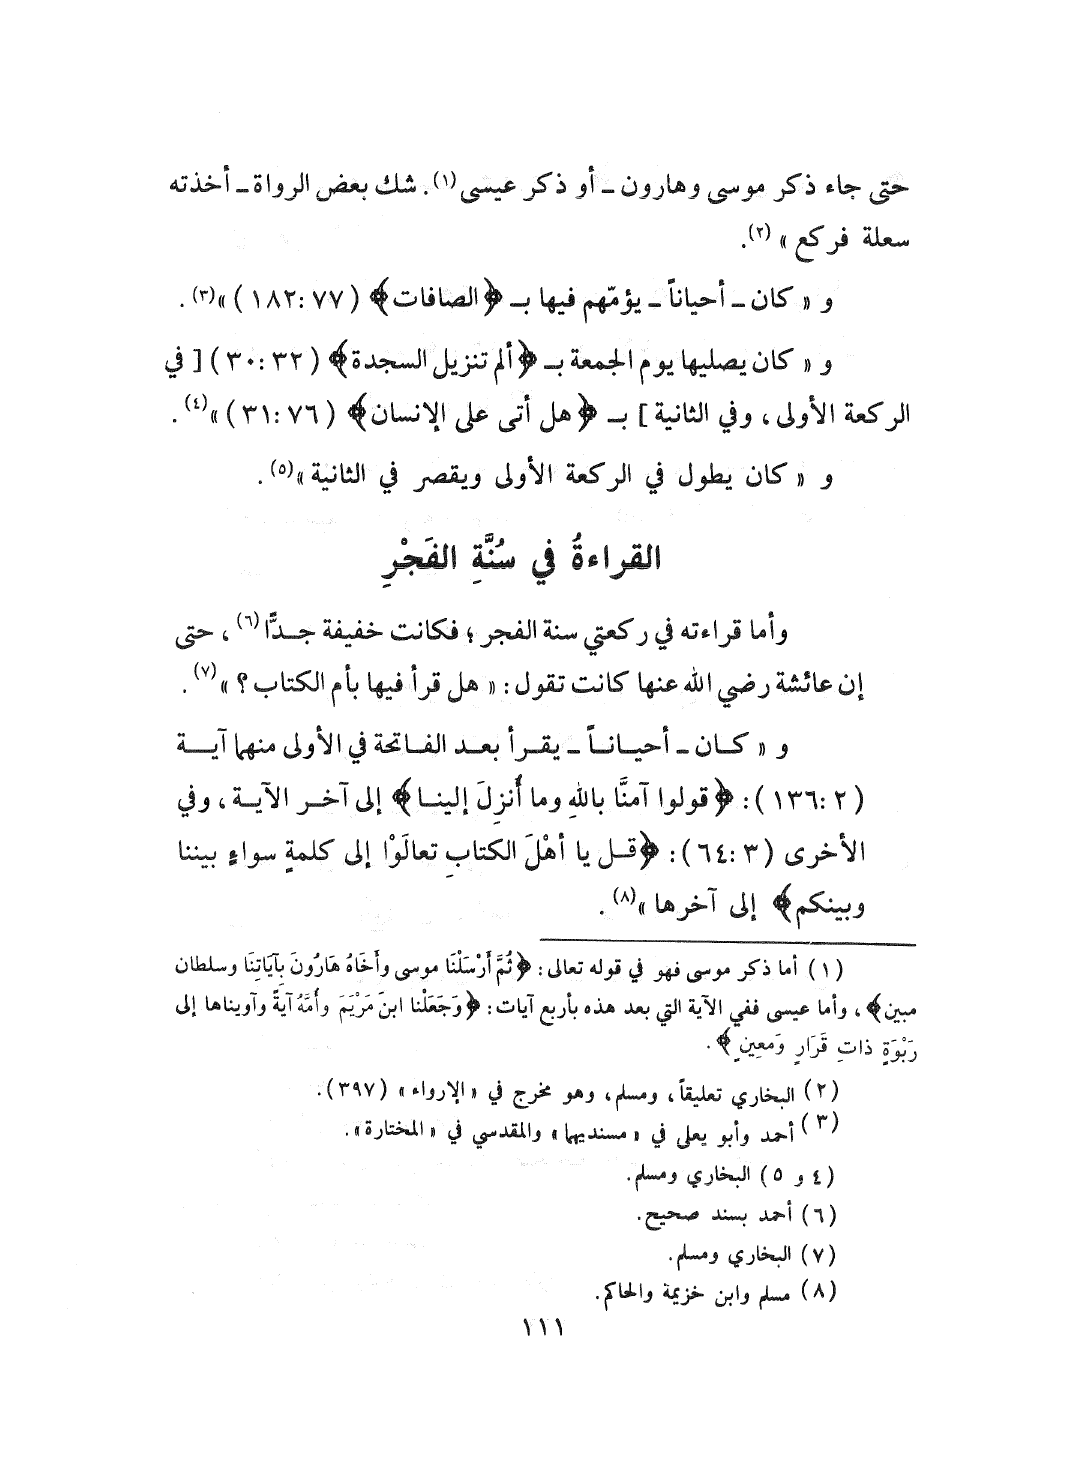 حتى جاء ذكر موسى وهارون ـ أو ذكر عيسى(١). شك بعض الرواة ـ أخذته
سعلة فركع »(٢).
و « كان ـ أحياناً ـ يؤمّهم فيها بـ ﴿الصافات﴾ (٧٧: ١٨٢)»(٣).
و « كان يصليها يوم الجمعة بـ ﴿ألم تنزيل السجدة﴾ (٣٢: ٣٠) [ في
الركعة الأولى ، وفي الثانية ] بـ ﴿هل أتى على الإنسان﴾ (٧٦: ٣١)»(٤).
و « كان يطول في الركعة الأولى ويقصر في الثانية»(٥).
القراءةُ في سُنَّةِ الفَجْرِ
وأما قراءته في ركعتي سنة الفجر ؛ فكانت خفيفة جـدًّا(٦) ، حتى
إن عائشة رضي الله عنها كانت تقول : « هل قرأ فيها بأم الكتاب ؟ »(٧).
و « كـان ـ أحيـانـاً ـ يقـرأ بعـد الفـاتحة في الأولى منهما آيـة
(٢: ١٣٦): ﴿قولوا آمنَّا باللهِ وما أُنزِلَ إلينـا﴾ إلى آخـر الآيـة ، وفي
الأخرى (٣: ٦٤): ﴿قـل يا أهْلَ الكتابِ تعالَوْا إلى كلمةٍ سواءٍ بيننا
وبينكم﴾ إلى آخرها »(٨).
(١) أما ذكر موسى فهو في قوله تعالى : ﴿ثُمَّ أَرْسَلْنَا موسى وأَخَاهُ هَارُونَ بِآيَاتِنَا وسلطان
مبين﴾ ، وأما عيسى ففي الآية التي بعد هذه بأربع آيات : ﴿وَجَعَلْنا ابنَ مَرْيَمَ وأُمَّهُ آيةً وآويناها إلى
رَبْوَةٍ ذاتِ قَرَارٍ وَمَعِينٍ﴾ .
(٢) البخاري تعليقاً ، ومسلم ، وهو مخرج في «الإرواء» (٣٩٧).
(٣) أحمد وأبو يعلى في « مسنديهما » والمقدسي في « المختارة ».
(٤ و ٥) البخاري ومسلم.
(٦) أحمد بسند صحيح.
(٧) البخاري ومسلم.
(٨) مسلم وابن خزيمة والحاكم.
١١١